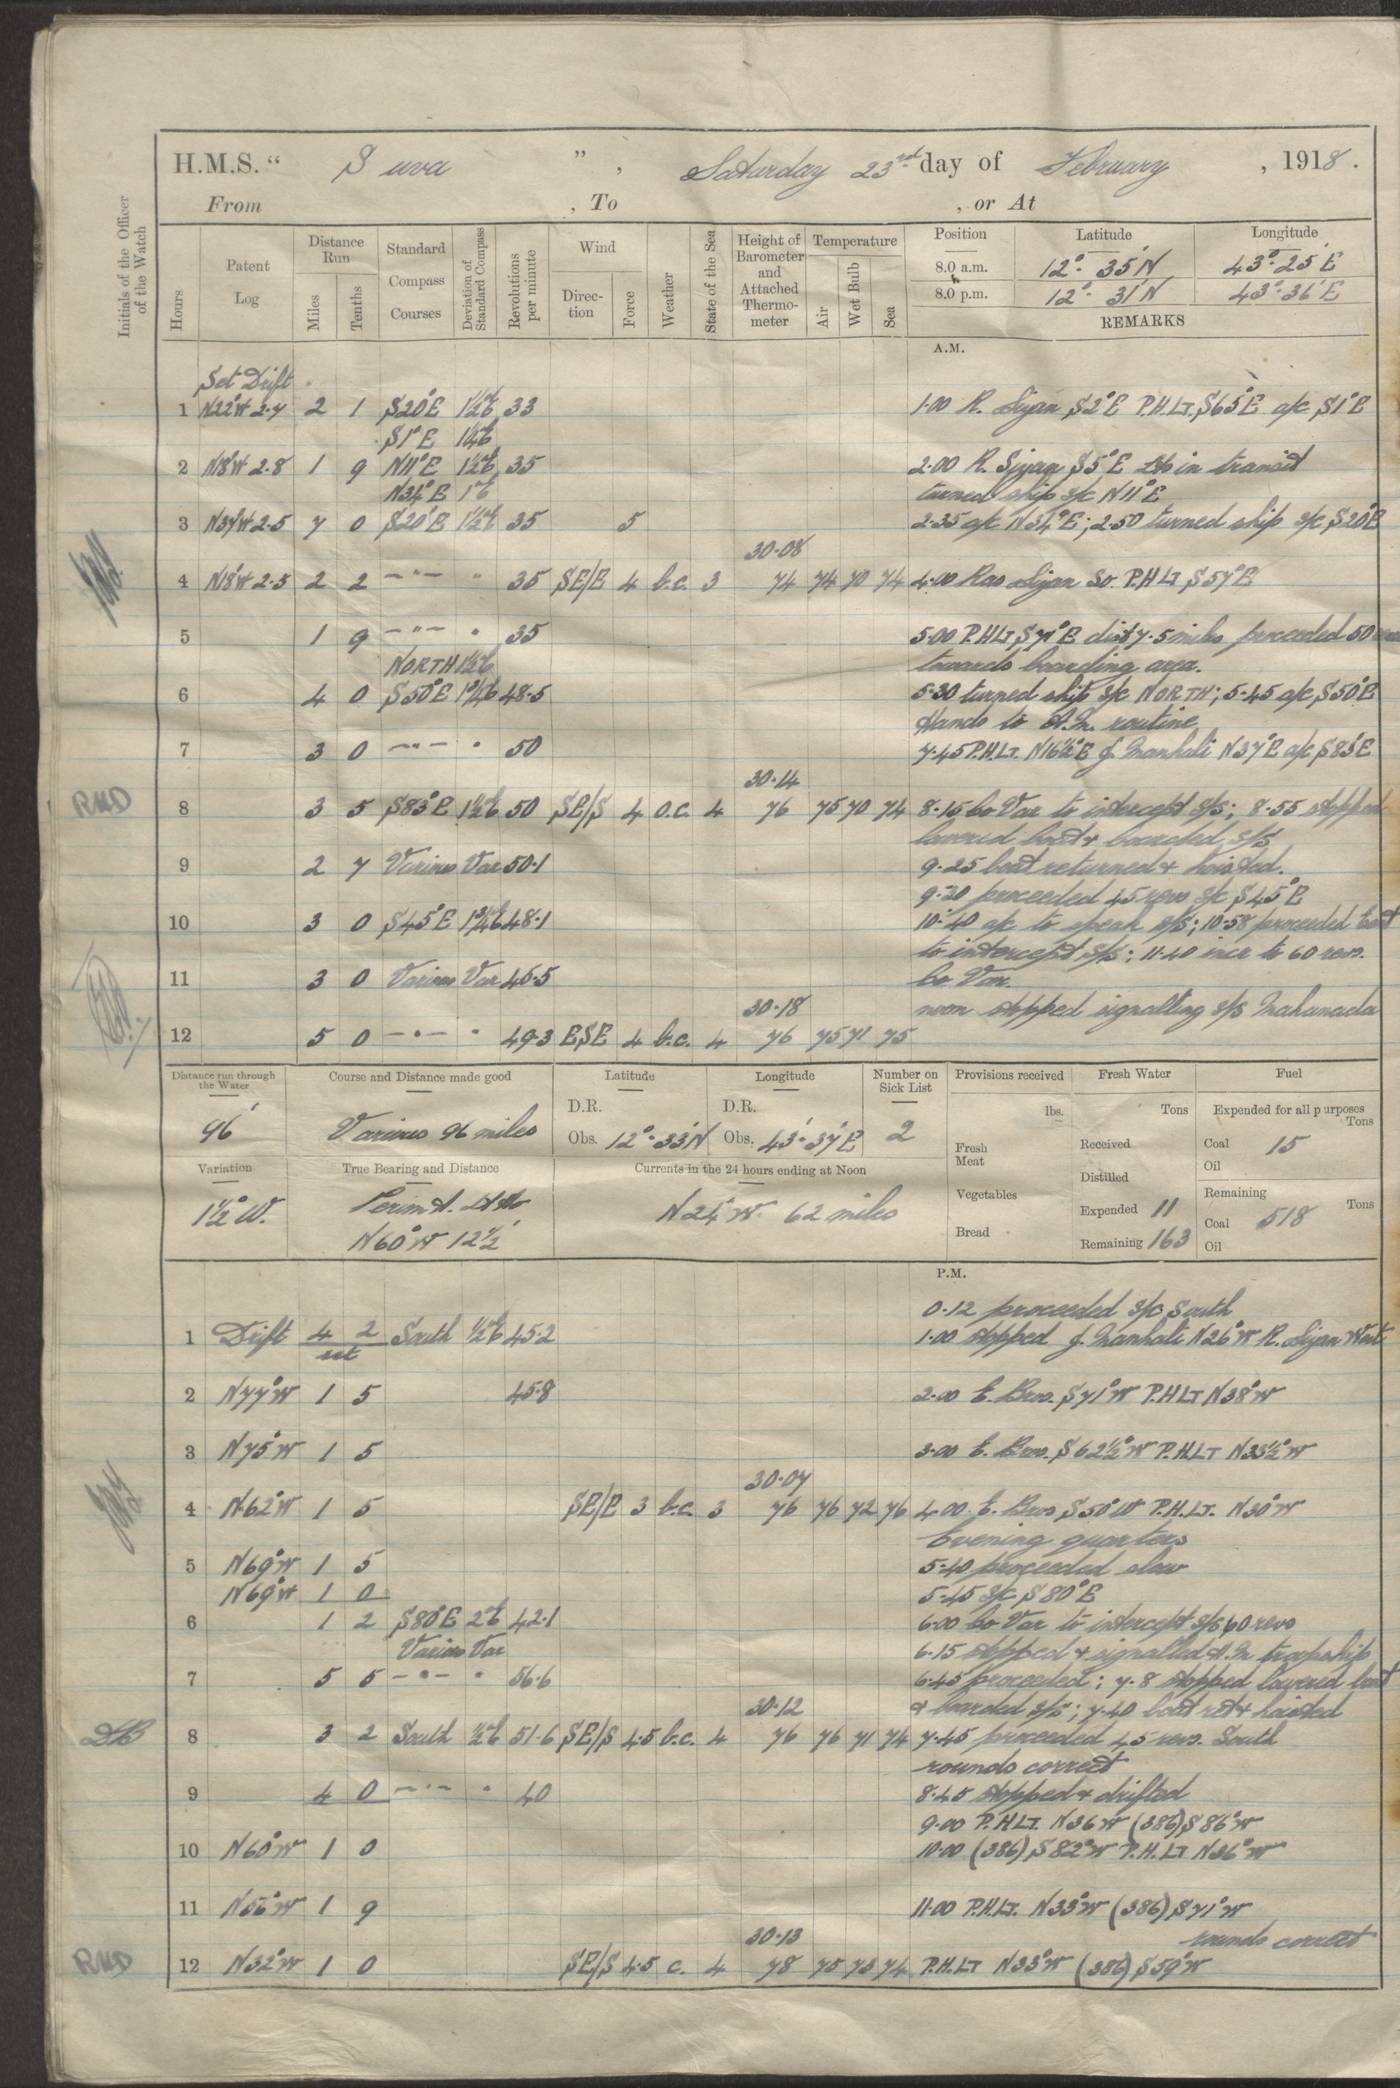 H.M.S. “ Suva ” , Saturday 23rd day of February , 1918.
From , To , or At
Initials of the Officer of the Watch
Hours
Patent Log
Distance Run
Miles
Tenths
Standard Compass Courses
Deviation of Standard Compass
Revolutions per minute
Wind
Direction
Force
Weather
State of the Sea
Height of Barometer and Attached Thermometer
Temperature
Air
Wet Bulb
Sea
Position Latitude Longitude
8.0 a.m. 12°- 35'N 43°- 25'E
8.0 p.m. 12°- 31'N 43°- 36'E
REMARKS
A.M.
Set Drift
1 N22°W 2.7 2 1 S20°E 1½°E 33 1.00 R. Siyan S2°E P.H.LT. S65°E a/c S1°E
S1°E
2 N18°W 2.8 1 9 N11°E 1½°E 35 2.00 R. Siyan S5°E in transit
N34°E 1°E turned ship s/c N11°E
3 N37°W 2.5 7 0 S20°E 1½°E 35 5 2.35 a/c N34°E; 2.50 turned ship s/c S20°E
30.08
4 N18°W 2.5 2 2 –"– " 35 SE/E 4 b.c. 3 74 74 70 74 4.00 Ras Siyan So. P.H LT S57°E
5 1 9 –"– " 35 5.00 P.H.LT. S71°E dist 7.5 miles proceeded 50
NORTH 1½°E towards boarding area.
6 4 0 S50°E 1¾°E 48.5 5.30 turned ship s/c NORTH; 5.45 a/c S50°E
Hands to A.M. routine
7 3 0 –"– " 50 7.45 P.H.LT. N16½°E J. Manhali N37°E a/c S83°E
30.14
RMD 8 3 5 S83°E 1½°E 50 SE/S 4 o.c. 4 76 75 70 74 8.15 Co Var to intercept s/s; 8.55 stopped
lowered boat & boarded s/s
9 2 7 Various Var 50.1 9.25 boat returned & hoisted.
9.30 proceeded 45 revs s/c S45°E
10 3 0 S45°E 1¾°E 48.1 10.40 a/c to speak s/s; 10.58 proceeded East
to intercept s/s; 11.40 incr to 60 revs.
11 3 0 Various Var 45.5 Co Var.
30.18 noon stopped signalling s/s Mahanada
12 5 0 –"– " 49.3 ESE 4 b.c. 4 76 75 71 75
Distance run through the Water
96'
Course and Distance made good
Various 96 miles
Latitude
D.R.
Obs. 12°-33'N
Longitude
D.R.
Obs. 43°-37'E
Number on Sick List
2
Provisions received
lbs.
Fresh Meat
Vegetables
Bread
Fresh Water
Tons
Received
Distilled
Expended 11
Remaining 163
Fuel
Expended for all purposes
Tons
Coal 15
Oil
Remaining
Tons
Coal 518
Oil
Variation
1½°W.
True Bearing and Distance
Perim
N60°W 12½'
Currents in the 24 hours ending at Noon
N24°W 62 miles
P.M.
0.12 proceeded s/c South
1 Drift 4 2 South 1½°E 45.2 1.00 stopped J. Manhali N26°W R. Siyan West
set
2 N77°W 1 5 45.8 2.00 E. Bros. S71°W P.H LT N38°W
3 N75°W 1 5 3.00 E. Bros. S62½°W P.H.LT N33½°W
30.07
4 N62°W 1 5 SE/E 3 b.c. 3 76 76 72 76 4.00 E. Bros S50°W P.H.LT. N30°W
Evening quarters
5 N69°W 1 5 5.40 proceeded slow
N69°W 1 0 5.45 s/c S80°E
6 1 2 S80°E 2°E 42.1 6.00 Co Var to intercept s/s 60 revs
Various Var 6.15 stopped & signalled troopship
7 5 5 –"– " 56.6 6.45 proceeded; 7.8 stopped lowered boat
30.12 & boarded s/s; 7.40 boat ret & hoisted
8 3 2 South 1½°E 51.6 SE/S 4.5 b.c. 4 76 76 71 74 7.45 proceeded 45 revs. South
rounds correct
9 4 0 –"– " 40 8.45 stopped & drifted
9.00 P.H LT. N36°W (386) S86°W
10 N60°W 1 0 10.00 (386) S82°W P.H.LT N36°W
11 N56°W 1 9 11.00 P.H.LT. N33°W (386) S71°W
30.13 rounds correct
RMD 12 N32°W 1 0 SE/S 4.5 c. 4 78 75 73 74 P.H.LT N33°W (386) S59°W